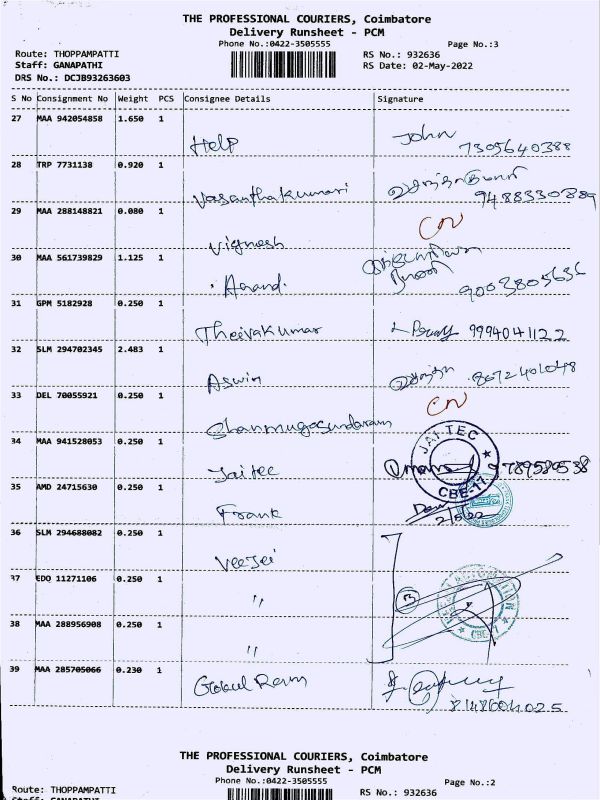 THE PROFESSIONAL COURIERS, Coimbatore
Delivery Runsheet - PCM
Phone No.:0422-3505555
Page No.:3
Route: THOPPAMPATTI
RS No.: 932636
Staff: GANAPATHI
RS Date: 02-May-2022
DRS No.: DCJB93263603
S No Consignment No Weight PCS Consignee Details Signature
27 MAA 942054858 1.650 1
Help John 7305640388
28 TRP 7731138 0.920 1
Vasanthakumari 9488330889
29 MAA 288148821 0.080 1
Vignesh CN
30 MAA 561739829 1.125 1
Anand. 9003805636
31 GPM 5182928 0.250 1
Theivakumar 9994041122
32 SLM 294702345 2.483 1
Aswin 8672401048
33 DEL 70055921 0.250 1
Shanmugasundaram CN
34 MAA 941528053 0.250 1
Jaitec 9789589538
JAI TEC
CBE-17
35 AMD 24715630 0.250 1
Frank 2/5/22
36 SLM 294688082 0.250 1
VeeJei
37 EDO 11271106 0.250 1
"
38 MAA 288956908 0.250 1
"
CBE-17
39 MAA 285705066 0.230 1
Gokul Ram
8148604025
THE PROFESSIONAL COURIERS, Coimbatore
Delivery Runsheet - PCM
Phone No.:0422-3505555
Page No.:2
Route: THOPPAMPATTI
RS No.: 932636
Staff: GANAPATHI